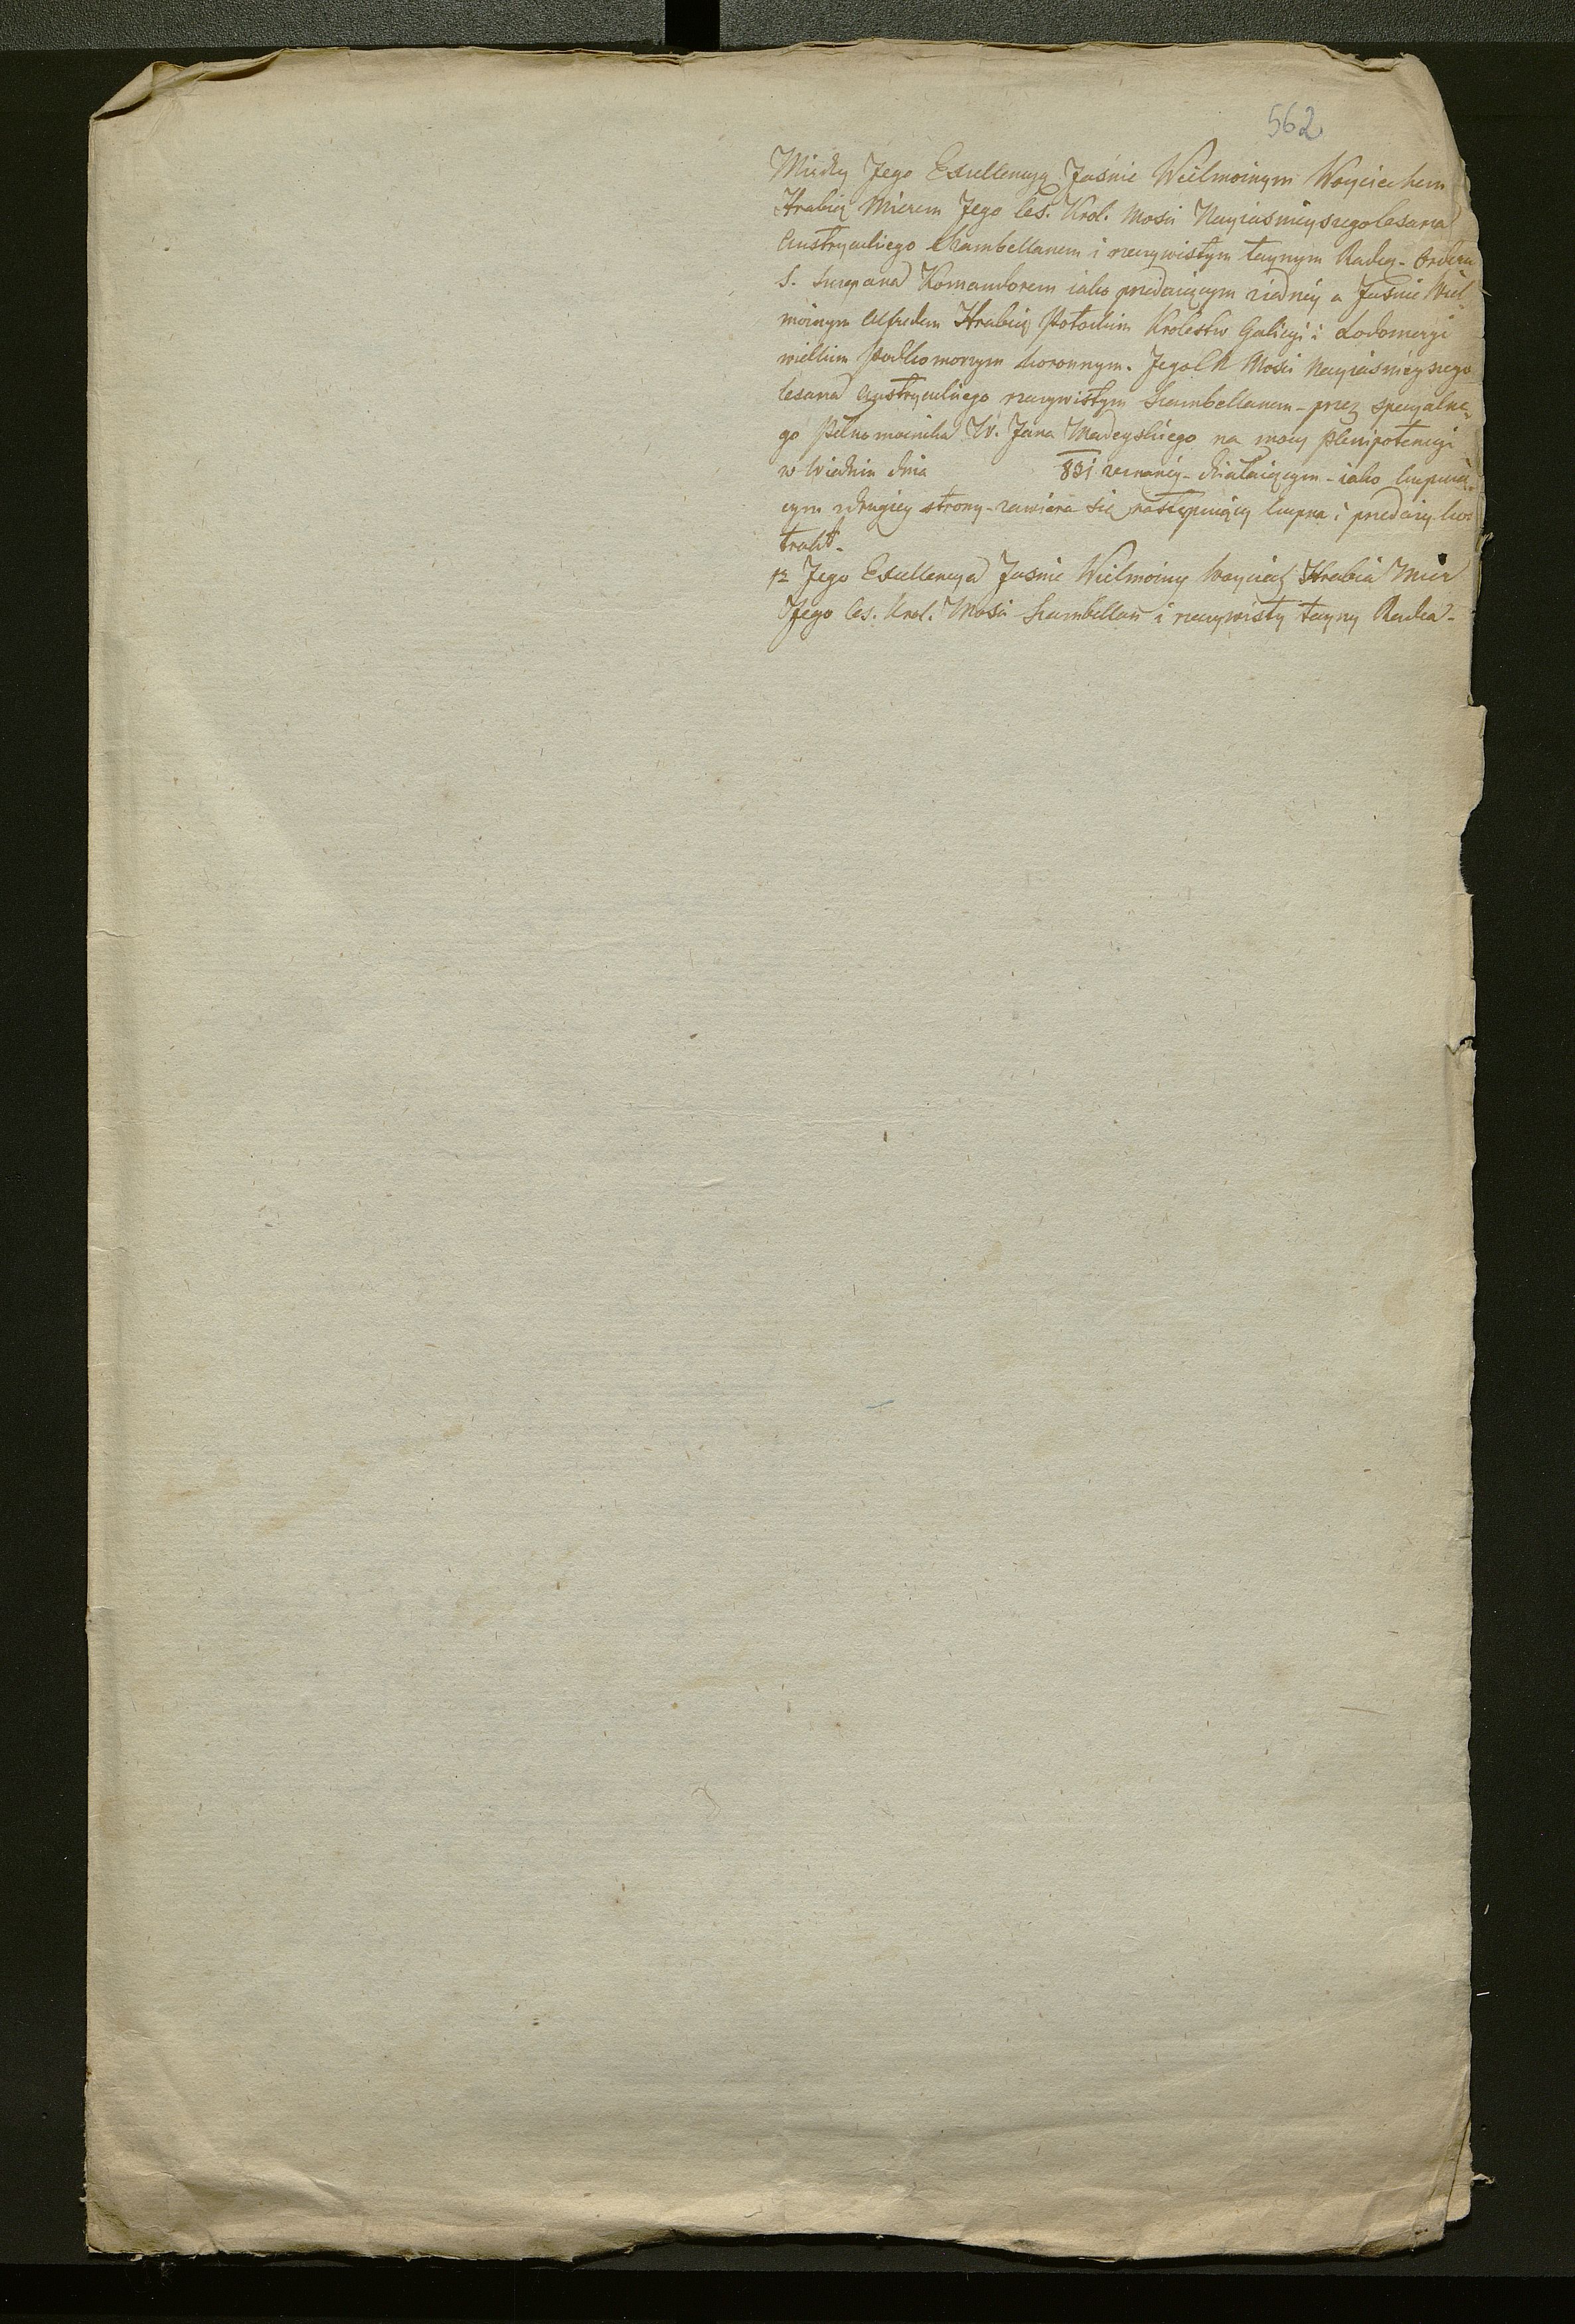 562
Między Jego Excellencyą Jaśnie Wielmożnym Woyciechem
Hrabią Mierem Jego Ces. Krol. Mosci Nayiasnieyszego Cesarza
Austryackiego Szambellanem i rzeczywistym taynym Radcą - Orderu
S. Szczepana Komandorem iako przedaiącym z iedney a Jaśnie Wiel-
możnym Alfredem Hrabią Potockim Krolestw Galicyi i Lodomeryi
wielkim Podkomorzym koronnym. Jego C K Mosci Nayiasnieyszego
Cesarza Austryackiego rzeczywistym Szambellanem - przez specyalne-
go Pełnomocnika W. Jana Madeyskiego na mocy plenipotencyi
w Wiedniu dnia 831 zeznaney - działaiącym - iako kupuią-
cym z drugiey strony - zawiera się następuiący kupna i przedaży kon-
trakt.
1º Jego Excellencya Jaśnie Wielmożny Woyciech Hrabia Mier
Jego Ces. Krol. Mosci Szambellan i rzeczywisty tayny Radca -